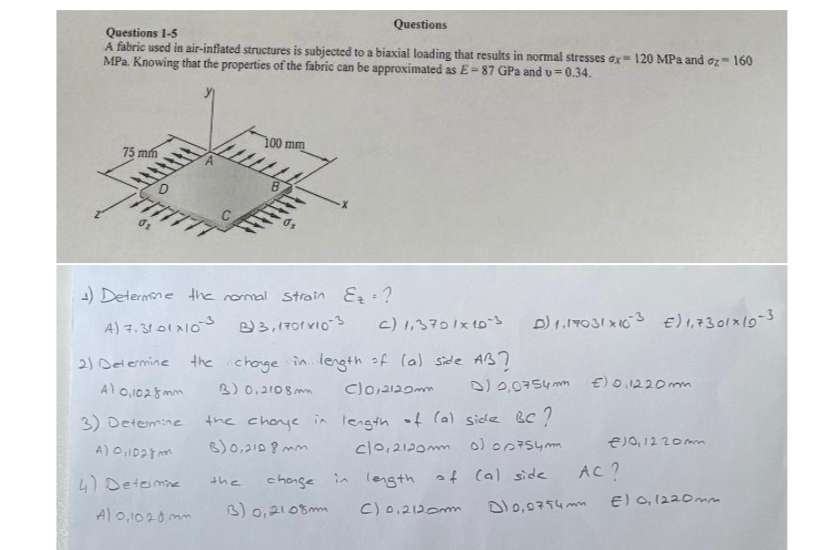 Questions
Questions 1-5
A fabric used in air-inflated structures is subjected to a biaxial loading that results in normal stresses σx= 120 MPa and σz= 160
MPa. Knowing that the properties of the fabric can be approximated as E = 87 GPa and υ = 0.34.
y
100 mm
75 mm
A
D
B
z
C
x
σz
σx
1) Determine the normal strain Ez = ?
A) 7,3101x10-3 B) 3,1701x10-3 C) 1,3701x10-3 D) 1,17031x10-3 E) 1,7301x10-3
2) Determine the change in length of (a) side AB?
A) 0,1028mm B) 0,2108mm C) 0,2120mm D) 0,0754mm E) 0,1220mm
3) Determine the change in length of (a) side BC?
A) 0,1028m B) 0,2108mm C) 0,2120mm D) 0,0754mm E) 0,1220mm
4) Determine the change in length of (a) side AC?
A) 0,1028 mm B) 0,2108mm C) 0,2120mm D) 0,0754mm E) 0,1220mm